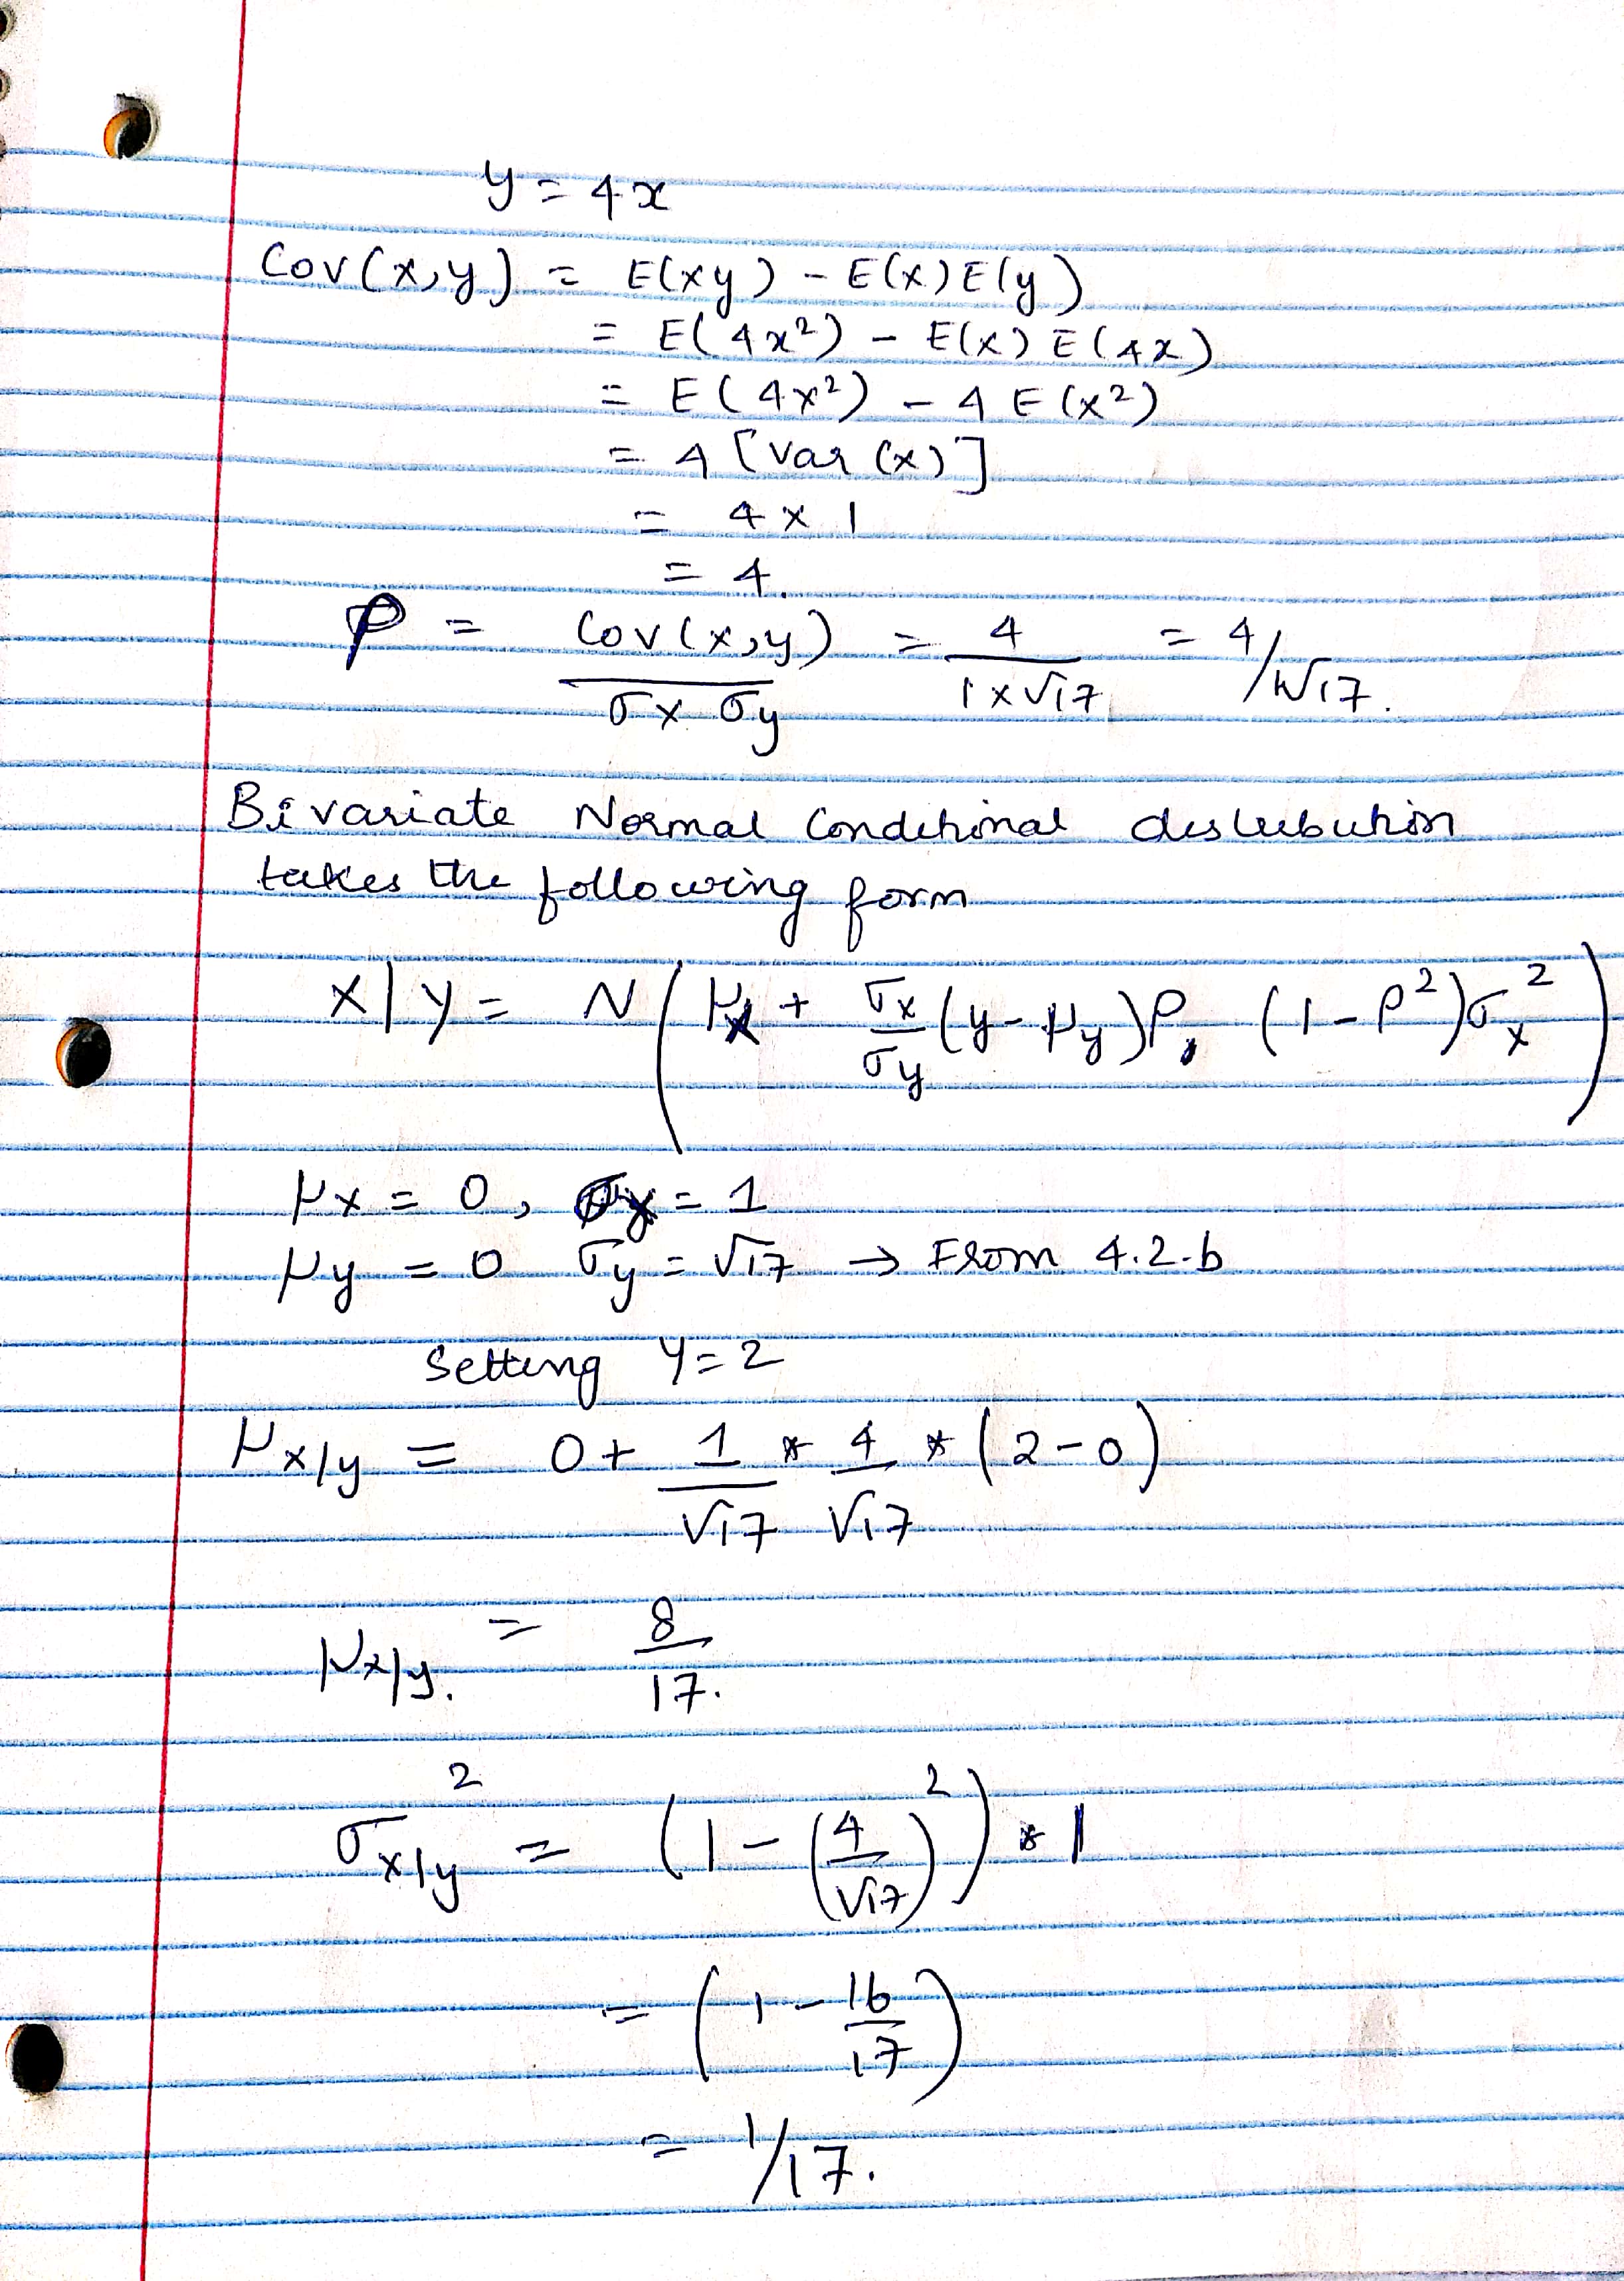 y = 4x
Cov(x,y) = E(xy) - E(x)E(y)
= E(4x²) - E(x)E(4x)
= E(4x²) - 4E(x²)
= 4[Var(x)]
= 4 x 1
= 4.
ρ = Cov(x,y) / σx σy = 4 / 1x√17 = 4/√17.
Bivariate Normal Conditional distribution
takes the following form
X|Y = N(μx + σx/σy (y-μy)ρ, (1-ρ²)σx²)
μx = 0, σx = 1
μy = 0 σy = √17 → From 4.2.b
Setting Y=2
μx|y = 0 + 1/√17 * 4/√17 * (2-0)
μx|y. = 8/17.
σ²x|y = (1-(4/√17)²) * 1
= (1 - 16/17)
= 1/17.